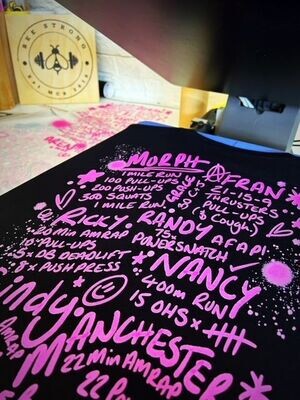 BEE STRONG
MORPH
FRAN
1 MILE RUN
100 PULL-UPS
200 PUSH-UPS
300 SQUATS
1 MILE RUN
21-15-9
THRUSTERS
PULL-UPS
(& Cough)
RICKY.
20 Min AMRAP
10 PULL-UPS
5 x DB DEADLIFT
8 x PUSH PRESS
RANDY
75
POWER SNATCH
NANCY
400m RUN
15 OHS x
MANCHESTER
22 Min AMRAP
22